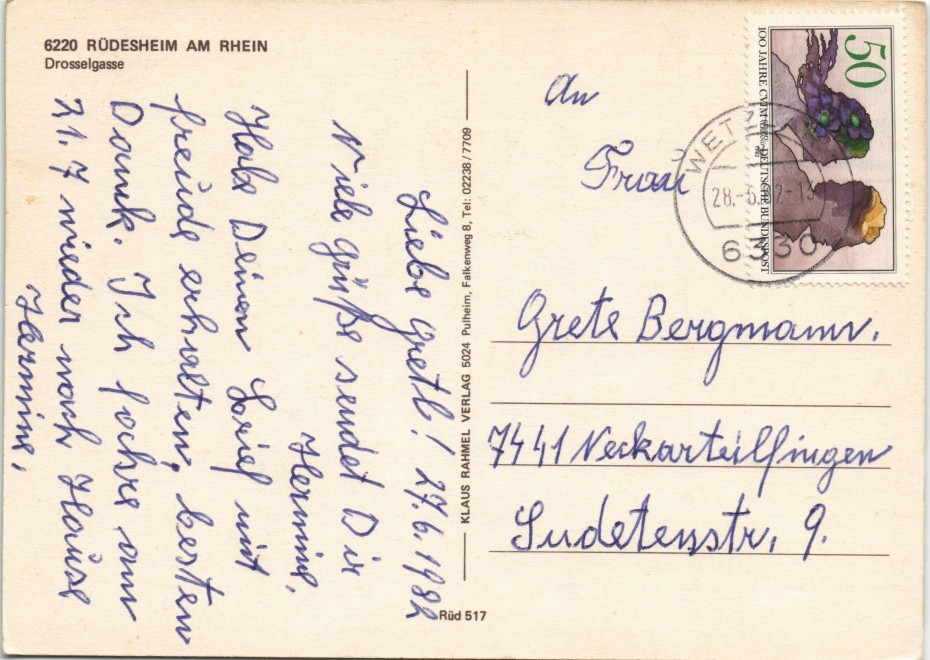 6220 RÜDESHEIM AM RHEIN
Drosselgasse
Liebe Gretl! 27.6.1982
Viele Grüße sendet Dir
Hermine,
Habe Deinen Brief mit
freude erhalten, besten
Dank. Ich fahre am
21.7 wieder nach Hause
Hermine,
KLAUS RAHMEL VERLAG 5024 Pulheim, Falkenweg 8, Tel: 02238/7709
Rüd 517
An
Frau
Grete Bergmann.
7441 Neckarteilfingen
Sudetenstr, 9.
50
100 JAHRE CVJM DEUTSCHE BUNDESPOST
WETZL
28.-6.82-13
6330